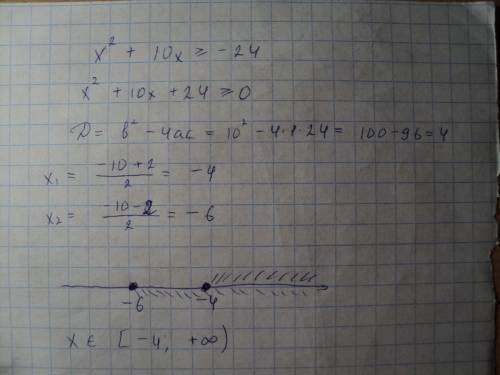 x² + 10x ≥ -24
x² + 10x + 24 ≥ 0
D = b² - 4ac = 10² - 4·1·24 = 100 - 96 = 4
x₁ = (-10 + 2)/2 = -4
x₂ = (-10 - 2)/2 = -6
-6 -4
x ∈ [-4, +∞)